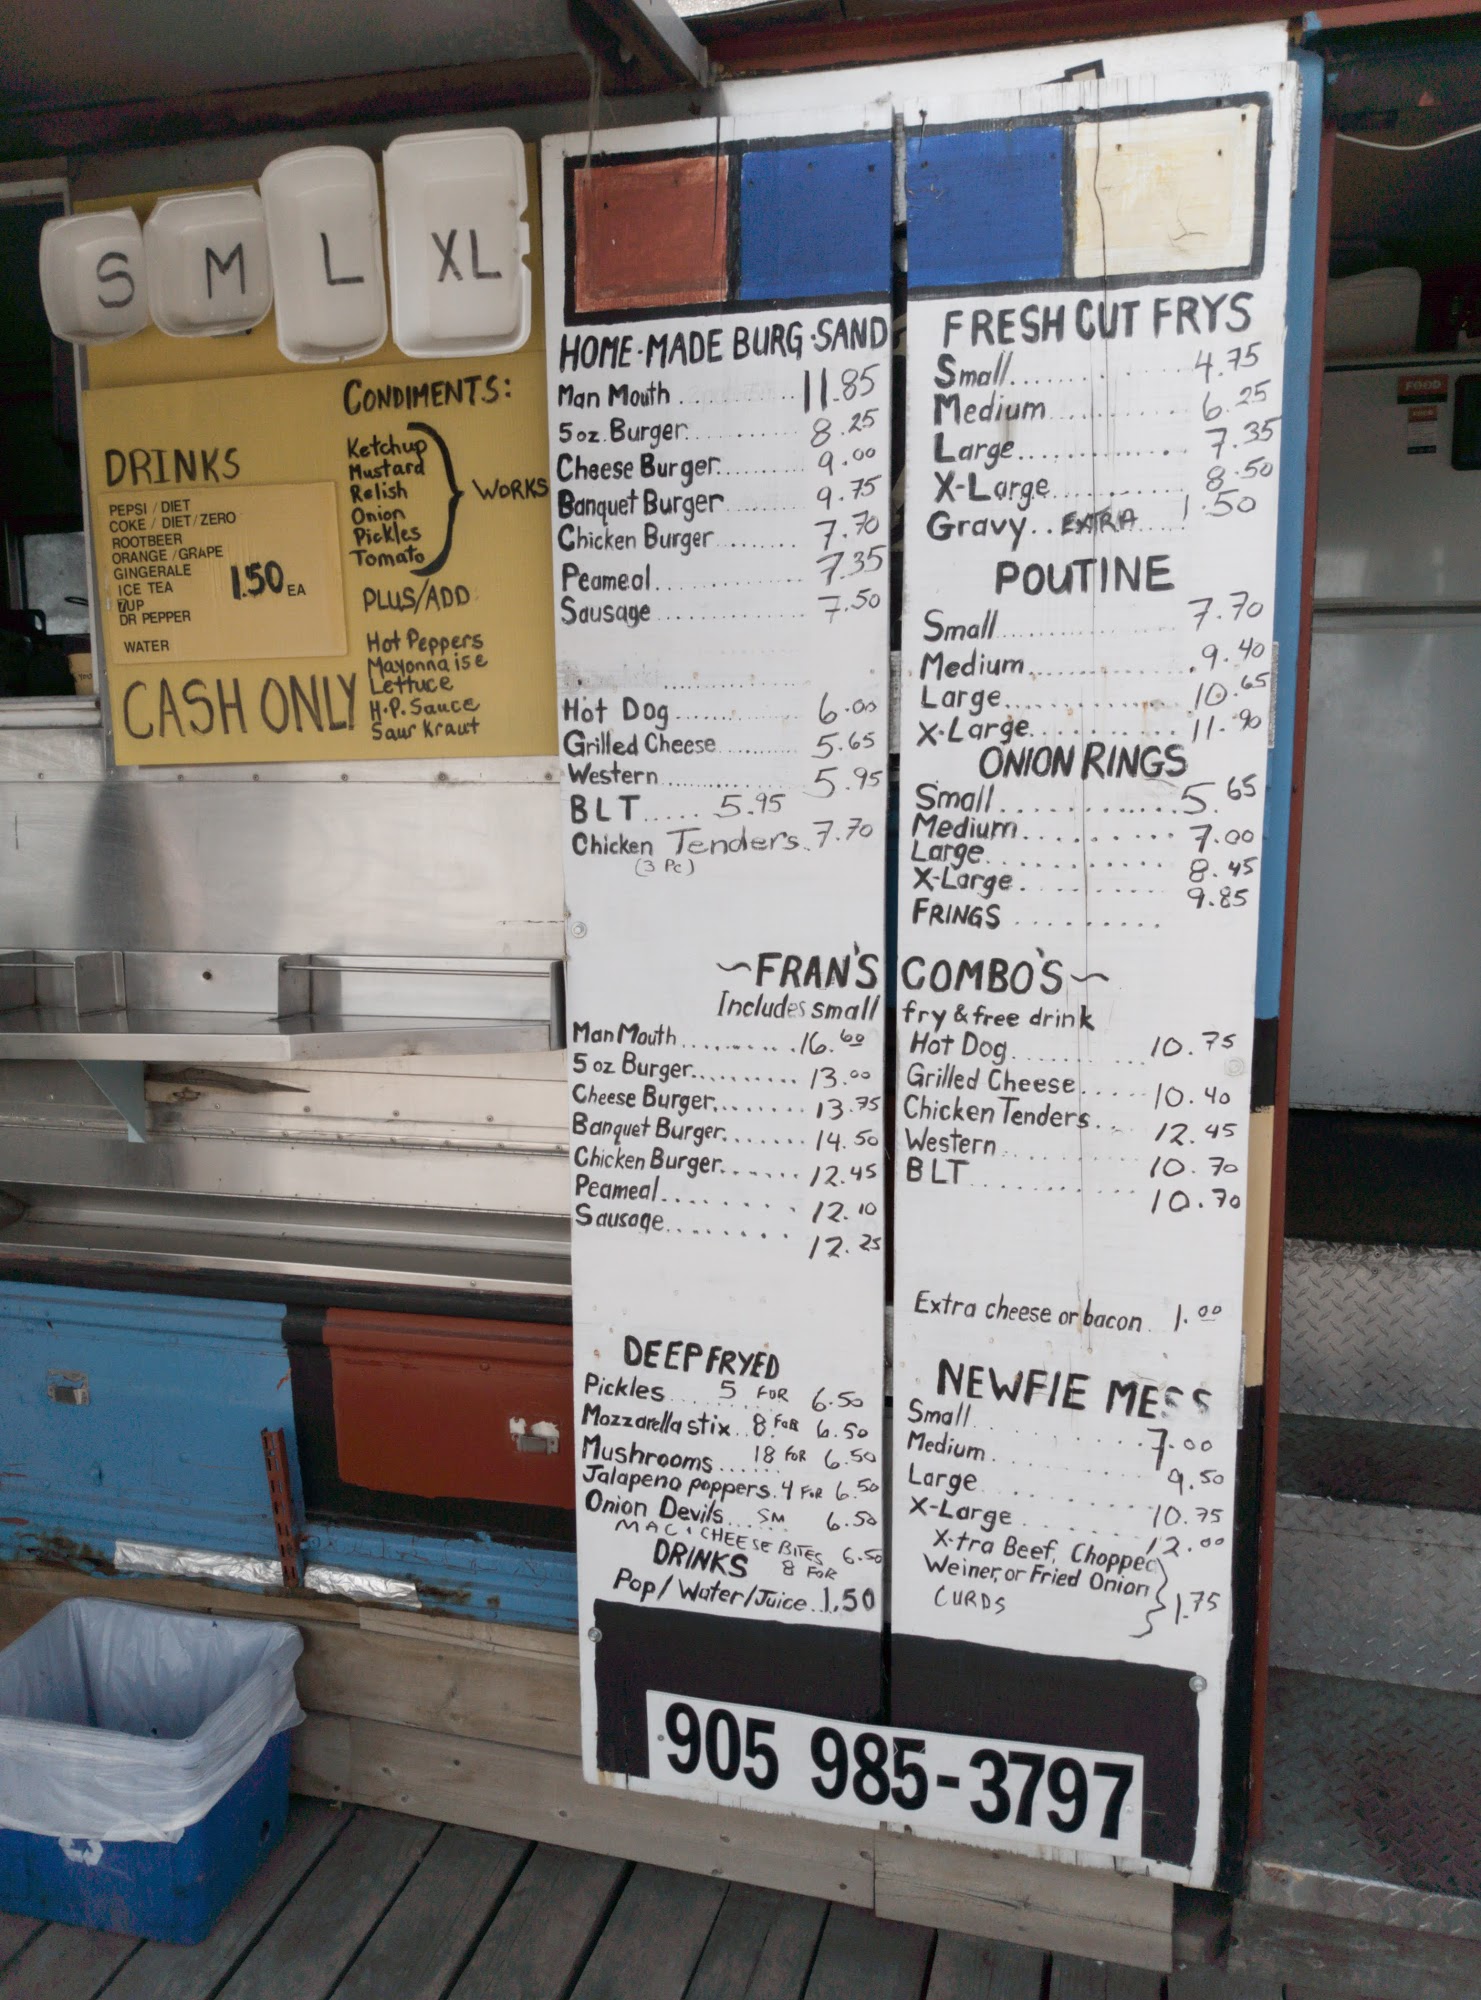 S
M
L
XL
CONDIMENTS:
Ketchup
Mustard
Relish
Onion
Pickles
Tomato
WORKS
PLUS/ADD:
Hot Peppers
Mayonnaise
Lettuce
H.P. Sauce
Saur Kraut
DRINKS
PEPSI / DIET
COKE / DIET / ZERO
ROOTBEER
ORANGE / GRAPE
GINGERALE
ICE TEA
7UP
DR PEPPER
WATER
1.50 EA
CASH ONLY
HOME-MADE BURG·SAND
Man Mouth ... 11.85
5 oz. Burger ... 8.25
Cheese Burger ... 9.00
Banquet Burger ... 9.75
Chicken Burger ... 7.70
Peameal ... 7.35
Sausage ... 7.50
Hot Dog ... 6.00
Grilled Cheese ... 5.65
Western ... 5.95
BLT ... 5.95
Chicken Tenders .. 7.70
(3 Pc)
FRESH CUT FRYS
Small ... 4.75
Medium ... 6.25
Large ... 7.35
X-Large ... 8.50
Gravy .. EXTRA ... 1.50
POUTINE
Small ... 7.70
Medium ... 9.40
Large ... 10.65
X-Large ... 11.90
ONION RINGS
Small ... 5.65
Medium ... 7.00
Large ... 8.45
X-Large ... 9.85
FRINGS ...
~FRAN'S COMBO'S~
Includes small fry & free drink
Man Mouth ... 16.60
5 oz Burger ... 13.00
Cheese Burger ... 13.75
Banquet Burger ... 14.50
Chicken Burger ... 12.45
Peameal ... 12.10
Sausage ... 12.25
Hot Dog ... 10.75
Grilled Cheese ... 10.40
Chicken Tenders .. 12.45
Western ... 10.70
BLT ... 10.70
Extra cheese or bacon 1.00
DEEP FRYED
Pickles ... 5 FOR 6.50
Mozzarella stix .. 8 FOR 6.50
Mushrooms ... 18 FOR 6.50
Jalapeno poppers . 4 FOR 6.50
Onion Devils ... SM 6.50
MAC & CHEESE BITES 6.50
8 FOR
DRINKS
Pop / Water / Juice .. 1.50
NEWFIE MESS
Small ... 7.00
Medium ... 9.50
Large ... 10.75
X-Large ... 12.00
X-tra Beef, Chopped
Weiner, or Fried Onion
CURDS
1.75
905 985-3797
FOOD